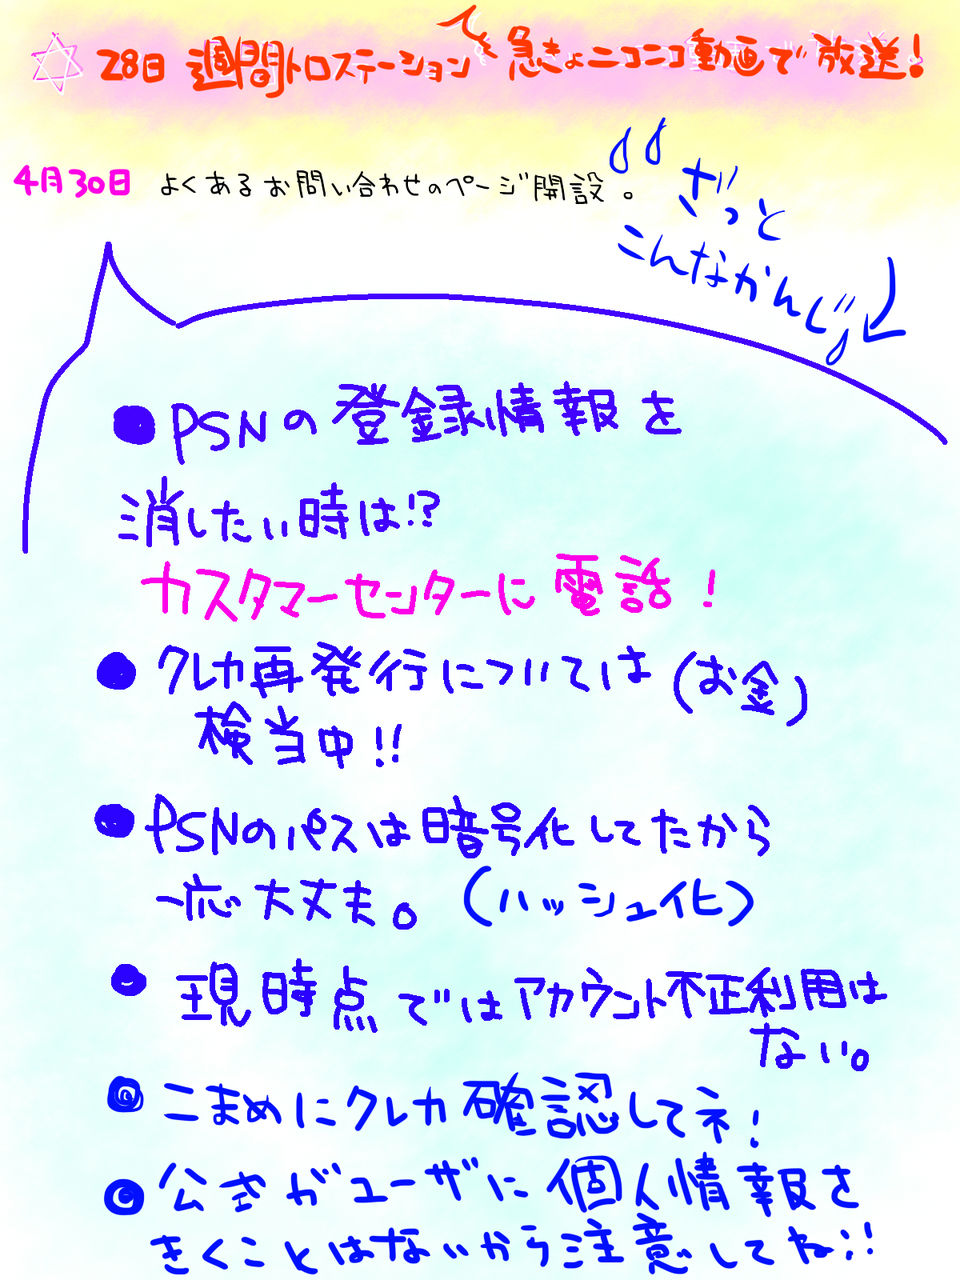 28日 週間トロステーション 急きょニコニコ動画で放送!
4月30日 よくあるお問い合わせのページ開設。
ざっと
こんなかんじ
●PSNの登録情報を
消したい時は!?
カスタマーセンターに電話!
●クレカ再発行については(お金)
検当中!!
●PSNのパスは暗号化してたから
一応大丈夫。(ハッシュ化)
●現時点ではアカウント不正利用は
ない。
●こまめにクレカ確認してネ!
●公式がユーザに個人情報を
きくことはないから注意してね!!